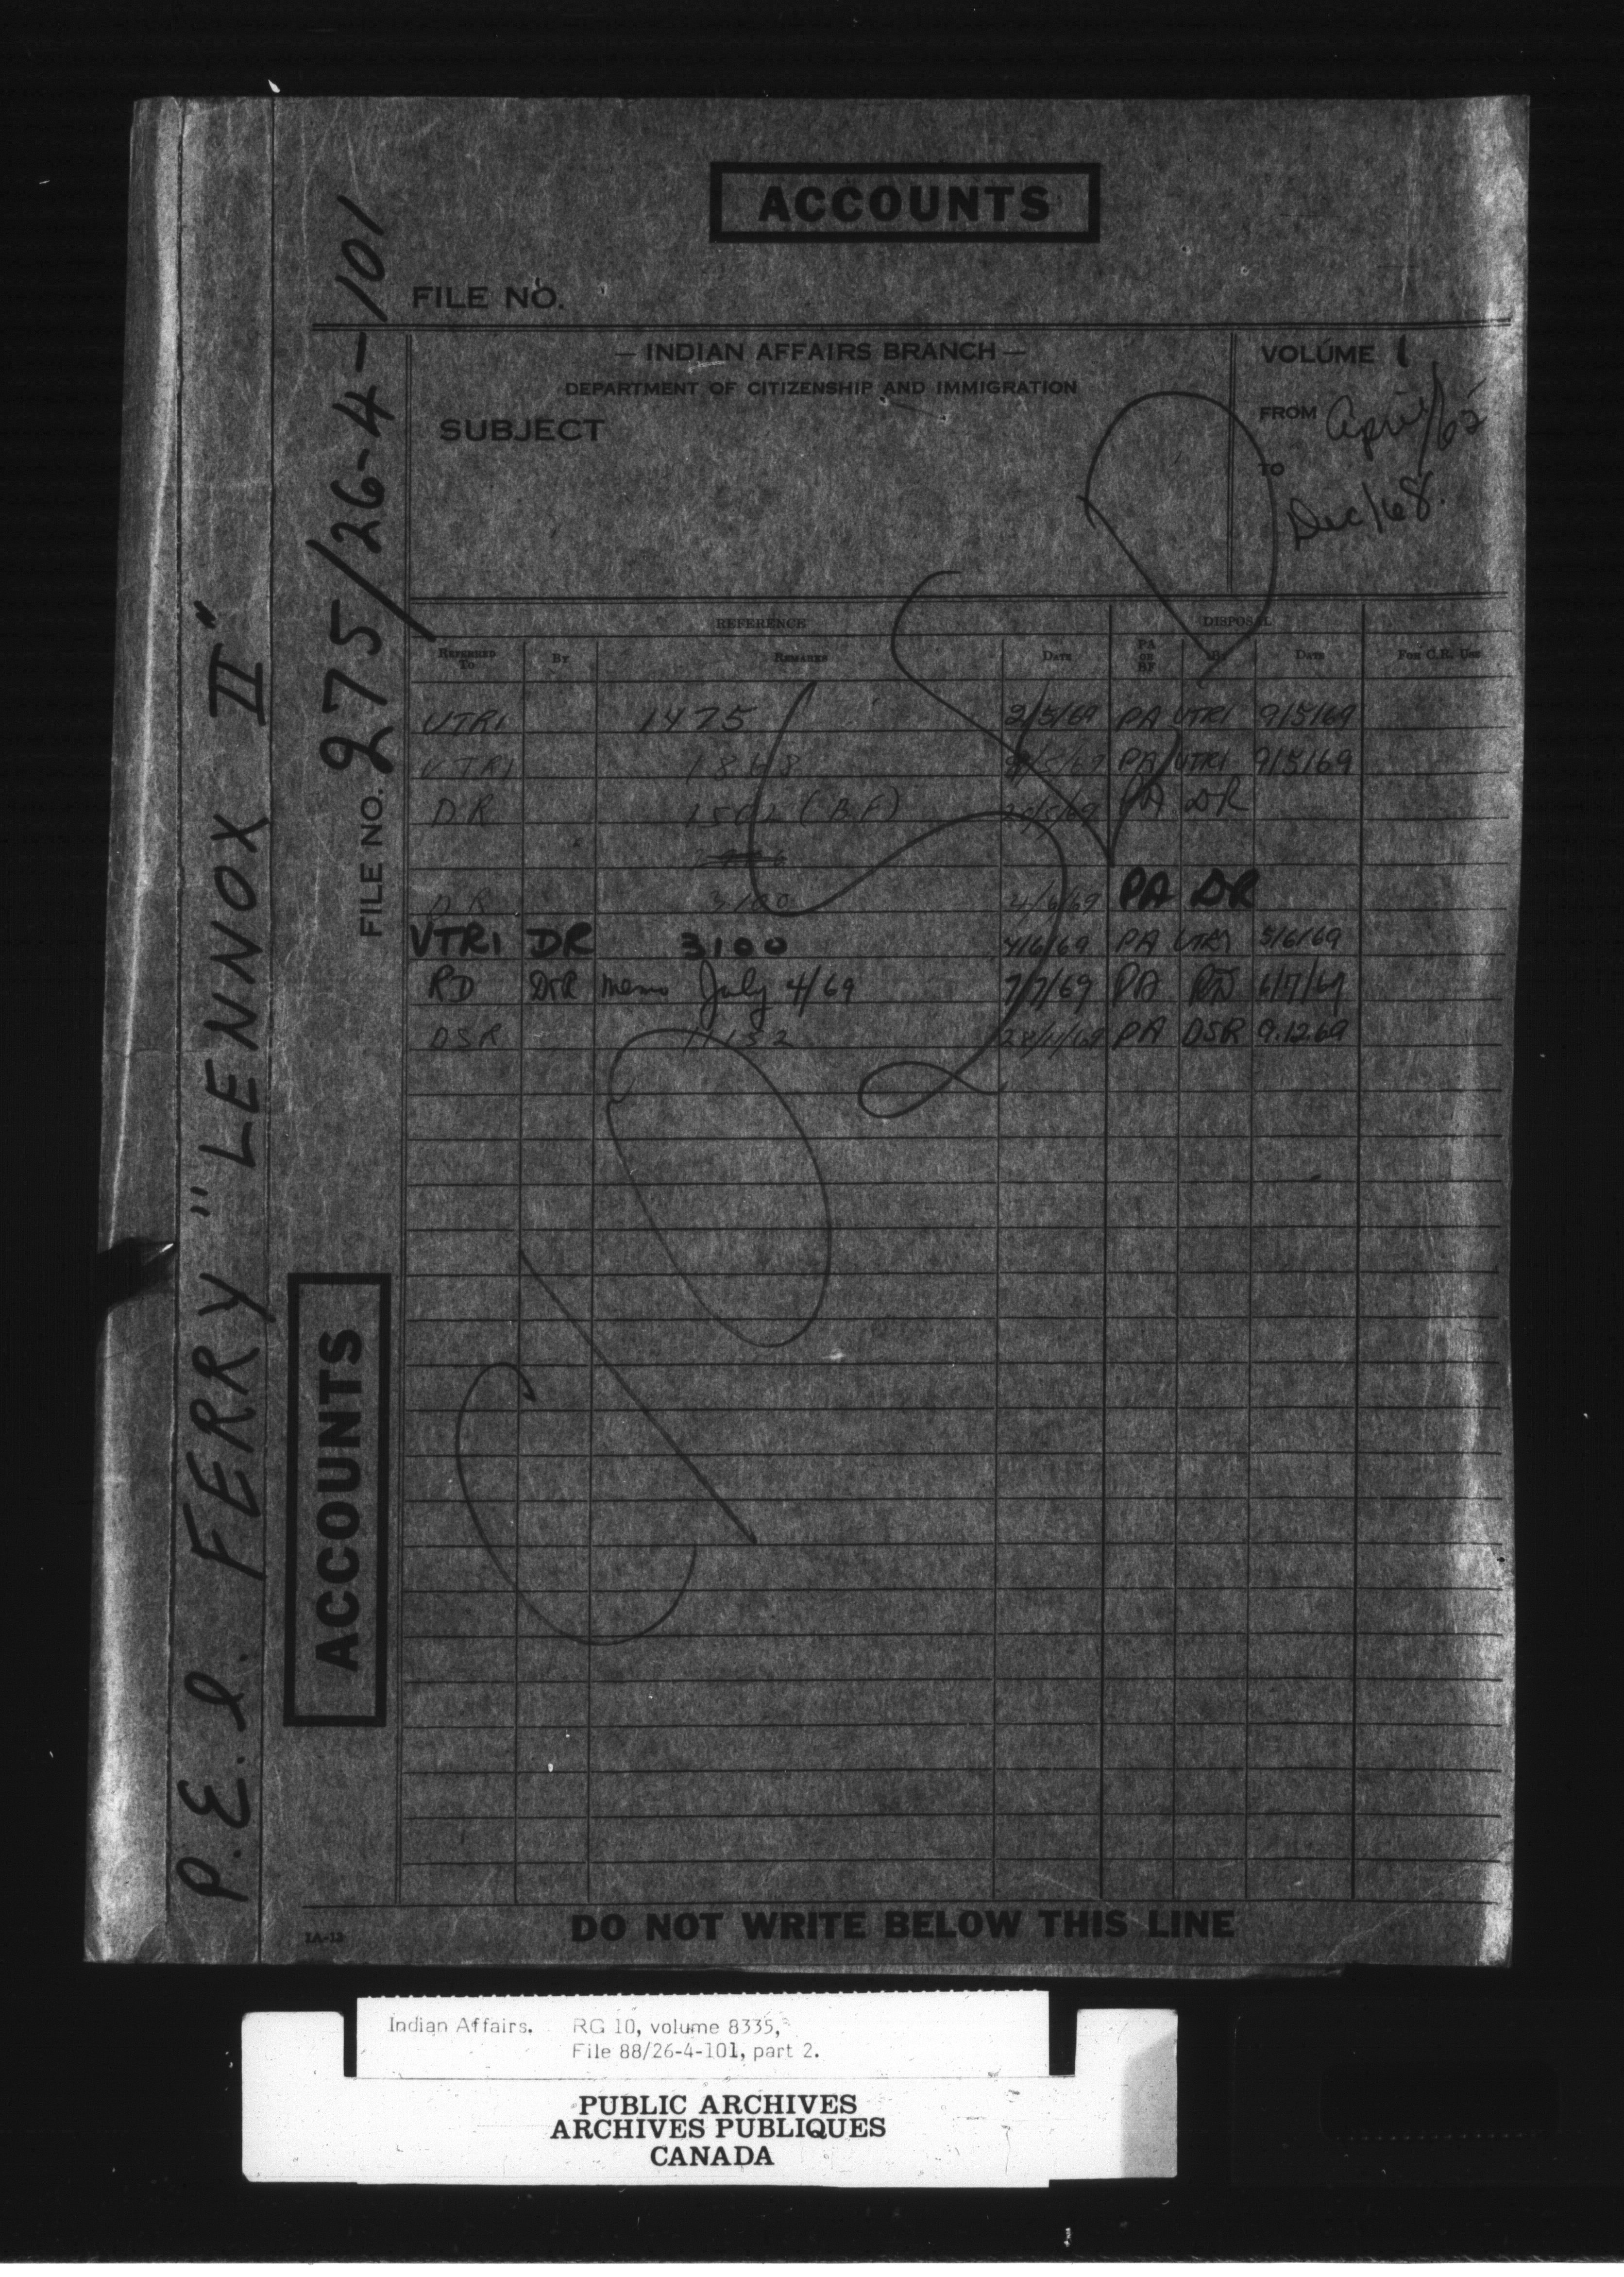 ACCOUNTS
FILE NO.
— INDIAN AFFAIRS BRANCH —
DEPARTMENT OF CITIZENSHIP AND IMMIGRATION
SUBJECT
VOLUME 1
FROM April/62
TO
Dec/68.
REFERENCE DISPOSAL
REFERRED TO BY REMARKS DATE PA OR BF BY DATE FOR C.R. USE
VTRI 1475 2/5/69 PA VTRI 9/5/69
VTRI 1868 PA VTRI 9/5/69
DR (BF) PA DR
DR 3100 4/6/69 PA DR
VTRI DR 3100 4/6/69 PA VTRI 5/6/69
RD DR memo July 4/69 7/7/69 PA RD
DSR 11132 PA DSR 9.12.69
CLOSED
DO NOT WRITE BELOW THIS LINE
IA-13
FILE NO. 275/26-4-101
ACCOUNTS
P.E.I. FERRY "LENNOX II"
Indian Affairs. RG 10, volume 8335,
File 88/26-4-101, part 2.
PUBLIC ARCHIVES
ARCHIVES PUBLIQUES
CANADA